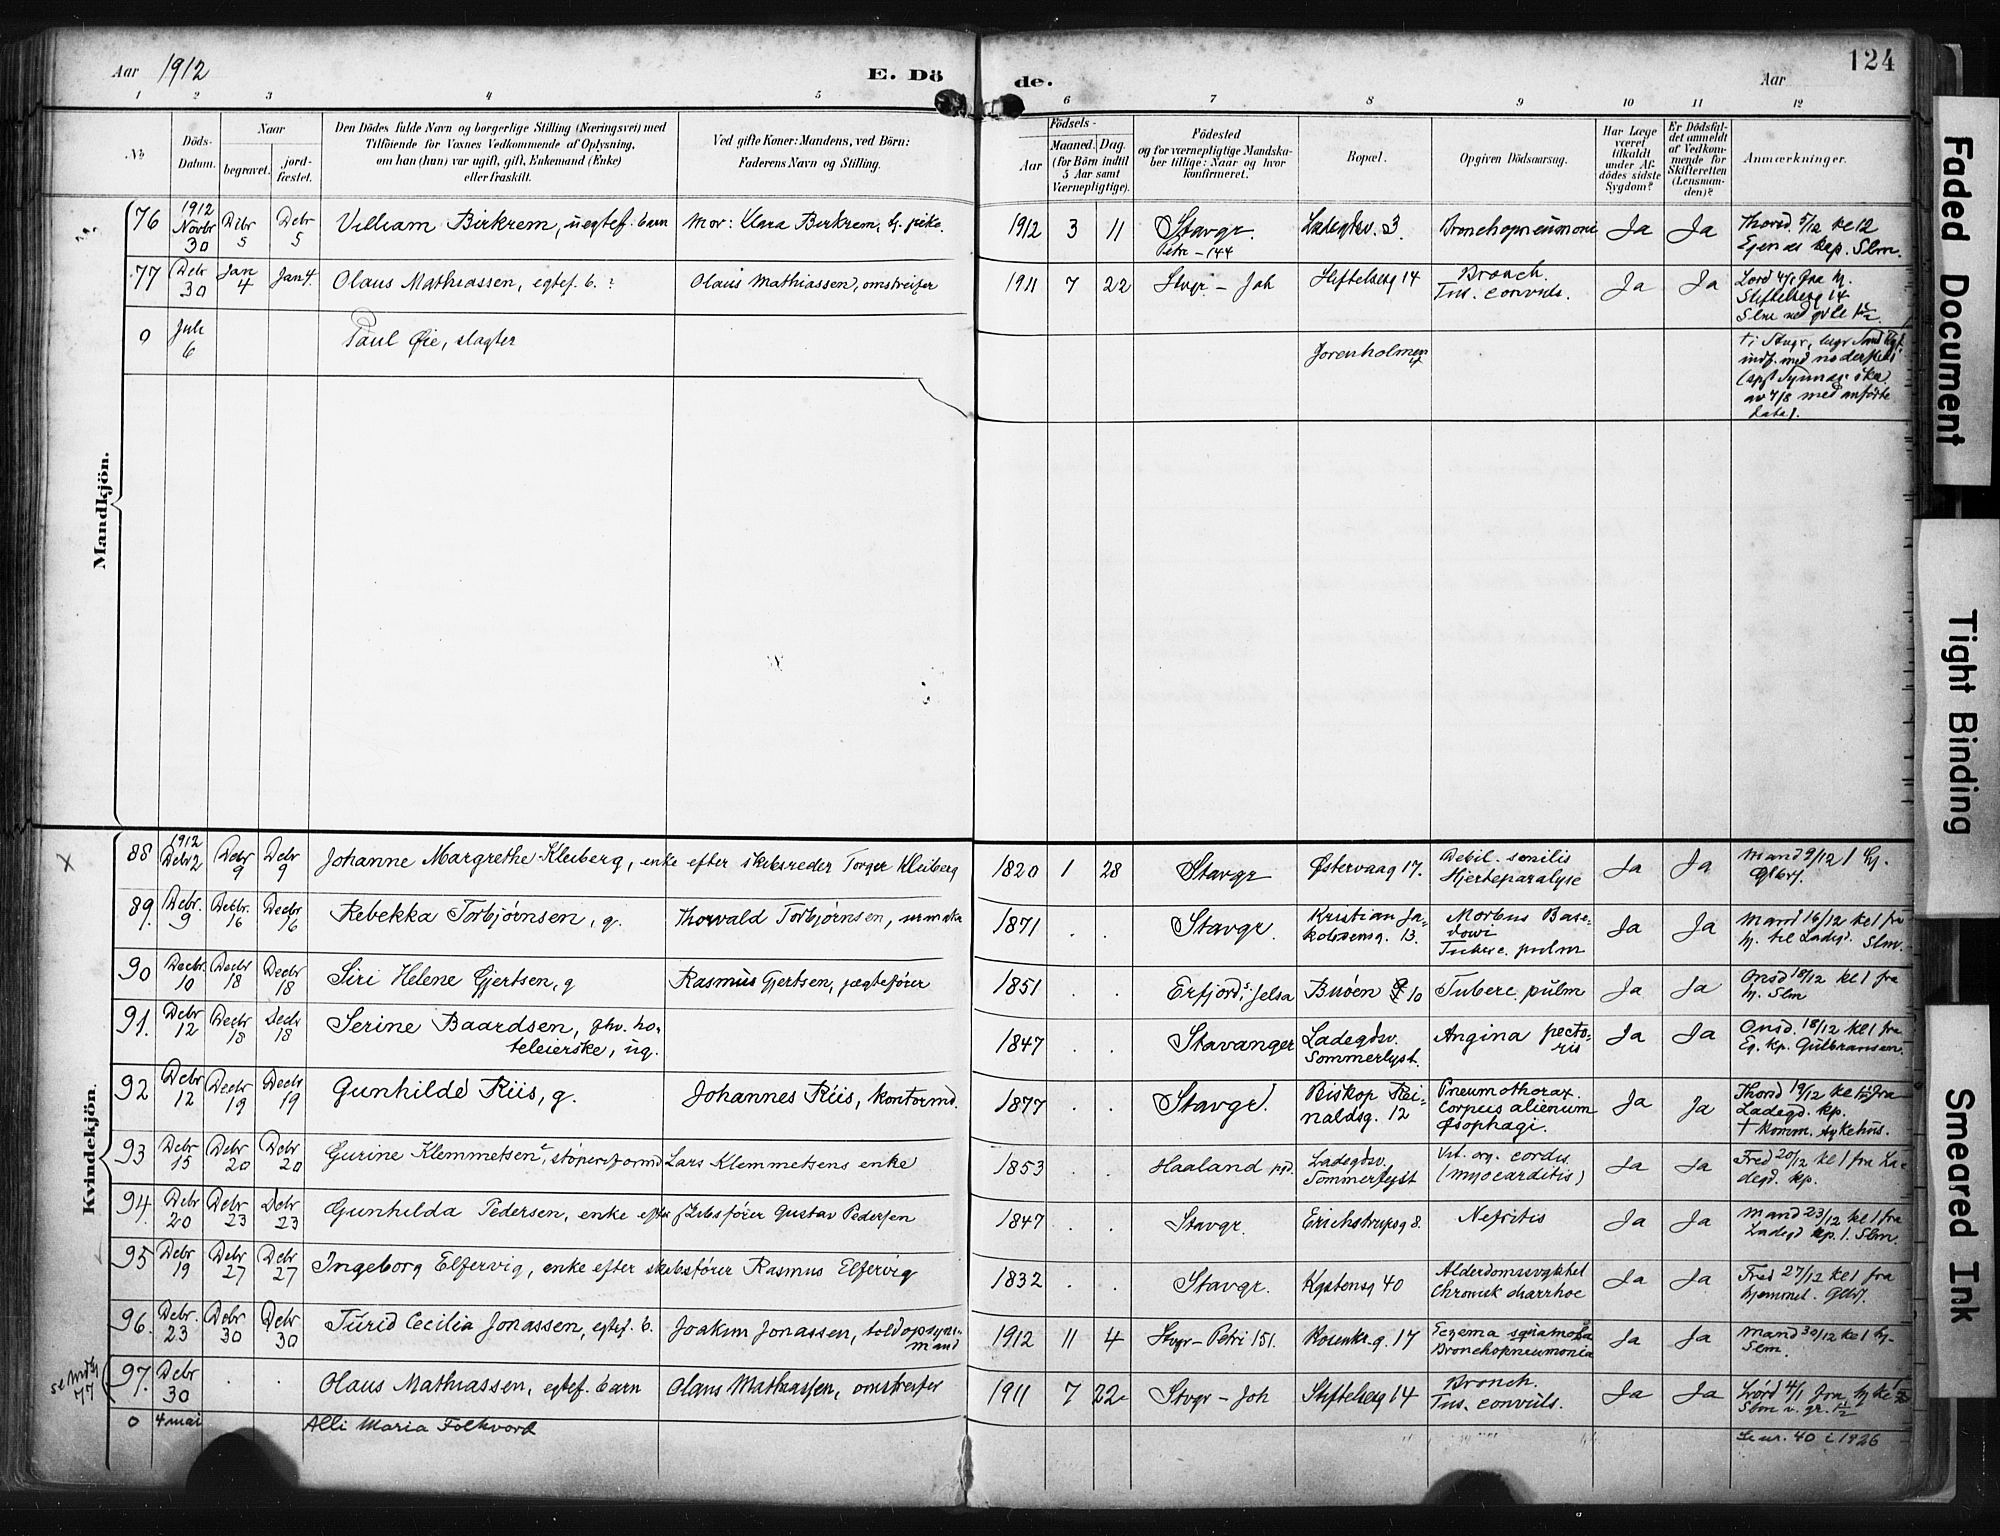 Aar 1912 E. Dö de. Aar 124
1 2 3 4 5 6 7 8 9 10 11 12
No
Döds-Datum.
Naar
begravet.
jord-fæstet.
Den Dödes fulde Navn og borgerlige Stilling (Næringsvei) med
Tilföiende for Voxnes Vedkommende af Oplysning,
om han (hun) var ugift, gift, Enkemand (Enke)
eller fraskilt.
Ved gifte Koner: Mandens, ved Börn:
Faderens Navn og Stilling.
Födsels-
Aar
Maaned. Dag.
(for Börn indtil
5 Aar samt
Værnepligtige).
Födested
og for værnepligtige Mandska-
ber tillige: Naar og hvor
konfirmeret.
Bopæl.
Opgiven Dödsaarsag.
Har Læge
været
tilkaldt
under Af-
dödes sidste
Sygdom?
Er Dödsfal-
det anmeldt
af Vedkom-
mende for
Skifteretten
(Lensman-
den)?
Anmærkninger.
Mandkjön.
76 1912 Novbr 30 Dcbr 5 Decbr 5 William Birkrem, uegtef. barn Mor: Clara Birkrem, tj. pike. 1912 3 11 Stavgr. Petri - 144 Ladegdsv. 3. Bronchopneumoni Ja Ja Thorsd. 5/12 kl 12
Egenæs kap. Slm.
77 Debr 30 Jan 4 Jan 4. Olaus Mathiassen, egtef. b. Olaus Mathiassen, omstreifer 1911 7 22 Stvgr - Joh Stiftelsesg 14 Bronch.
Tus. convuls. Ja Ja Lørd 4/1 fra hj.
Stiftelsesg 14
0 Juli 6 Paul Øie, slagter Jorenholmen
med anførte
dato).
Kvindekjön.
88 1912 Debr 2 Debr 9 Debr 9 Johanne Margrethe Kleiberg, enke efter skibsreder Torger Kleiberg 1820 1 28 Stavgr Østervaag 17. Debil. senilis
Hjerteparalyse Ja Ja Mand 9/12 1 hj.
89. Debr. 9 Decbr. 16 Decbr 16 Rebekka Torbjørnsen, g. Thorvald Torbjørnsen, urmaker 1871 . . Stavgr. Kristian Ja-
kobsensg. 13. Morbus Base-
dowi
Tuberc. pulm Ja Ja Mand 16/12 kl 1 fra
hj. til Ladegd. Slm.
90 Decbr. 10 Decbr 18 Decbr 18 Siri Helene Gjertsen, g Rasmus Gjertsen, jægtefører 1851 . . Erfjord s. Jelsa Buøen 10 Tuberc pulm Ja Ja Onsd 18/12 kl 1 fra
hj. Slm
91. Debr 12 Decbr 18 Decbr 18 Serine Baardsen, fhv. ho-
teleierske, ug. 1847 . . Stavanger Ladegdsv.
Sommerlyst. Angina pecto-
ris Ja Ja Onsd. 18/12 kl 1 fra
Eg. Kp. Gulbransen.
92 Debr 12 Decbr 19 Decbr 19 Gunhilde Riis, g. Johannes Riis, kontormd. 1877 . . Stavgr. Biskop Rei-
naldsg. 12 Pneumothorax.
Corpus alienum
Øsophagi. Ja Ja Thorsd 19/12 kl 1 1/2 fra
Ladegd. kp.
† komm. sykehus.
93 Debr 15 Debr 20 Debr 20 Gurine Klemmetsen, støperiformd Lars Klemmetsens enke 1853 . . Haaland pgd. Ladegdsv.
Sommerlyst Vit. org. cordis
(myocarditis) Ja Ja Fred 20/12 kl 1 fra La-
degd. kp.
94. Debr 20 Debr 23 Debr 23 Gunhilda Pedersen, enke efter skibsfører Gustav Pedersen 1847 . . Stavgr. Erichstrupsg 8. Nefritis Ja Ja Mand 23/12 kl 1 fra
Ladegd kp. 1. Slm.
95 Debr 19 Debr 27 Debr 27 Ingeborg Elfervig, enke efter skibsfører Rasmus Elfervig 1832 . . Stavgr. Kystensg 40 Alderdomssvakhet
Chronisk diarrhoe Ja Ja Fred 27/12 kl 1 fra
hjemmet.
96. Debr. 23 Debr 30 Debr 30 Turid Cecilia Jonassen, egtef. b. Joakim Jonassen, toldopsyns-
mand 1912 11 4 Stvgr - Petri 151. Rosenkr. g. 17 Eczema squamosa
Bronchopneumonia Ja Ja Mand 30/12 kl 1 hj.
Slm.
77
97. Debr 30 . . Olaus Mathiassen, egtef. barn Olaus Mathiassen, omstreifer 1911 7 22 Stvgr - Joh Stiftelsesg 14 Bronch.
Tus. convuls. Ja Ja Lørd 4/1 fra hj
0 4 mai Alli Maria Folkvord Se nr. 40 i 1926
Faded Document
Tight Binding
Smeared Ink